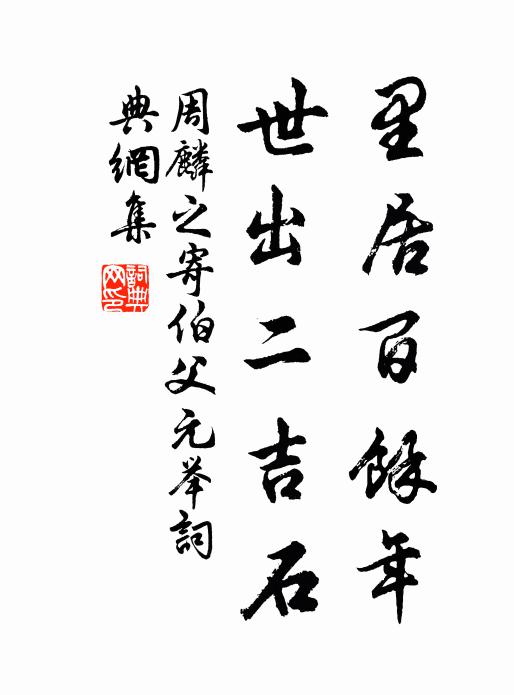 里居百餘年
世出二吉石
周麟之寄伯父元举詞
典網集
詞典網印